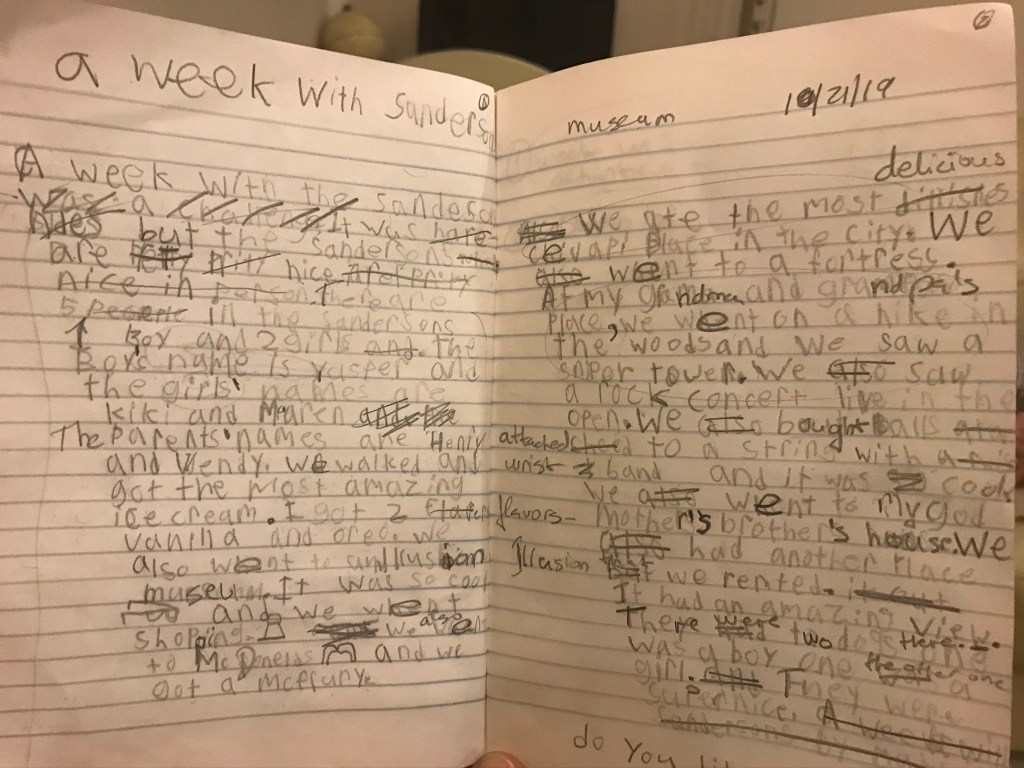 a week with Sanders
①
A week with the Sanders
but the Sandersons
are nice
There are
5 in the Sandersons
1 Boy and 2 girls the
Boy's name is Kasper and
the girls' names are
kiki and Maren
The Parents' names are Henry
and Wendy. we walked and
got the most amazing
ice cream. I got 2 flavors-
vanilla and oreo. we
also went to an Illusion
museum. It was so cool
and we went
shopping. we also went
to McDonelds and we
got a mcflurry.
②
museum 10/21/19
delicious
We ate the most
cevapi place in the city. We
went to a fortress.
At my grandma and grandpa's
Place, we went on a hike in
the woods and we saw a
super tower. We saw
a rock concert live in the
open. We bought balls
attached to a string with a
wrist band and it was cool
We went to my god
mother's brother's house. We
had another place
Illusion
we rented.
It had an amazing view.
There were two dogs there.
was a boy one
girl. They were
super nice.
do you